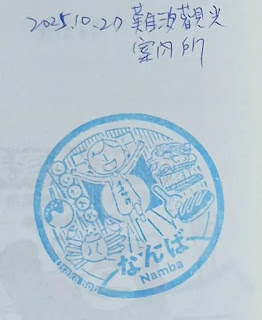 2025.10.27 難波観光
案内所
なんば
Namba